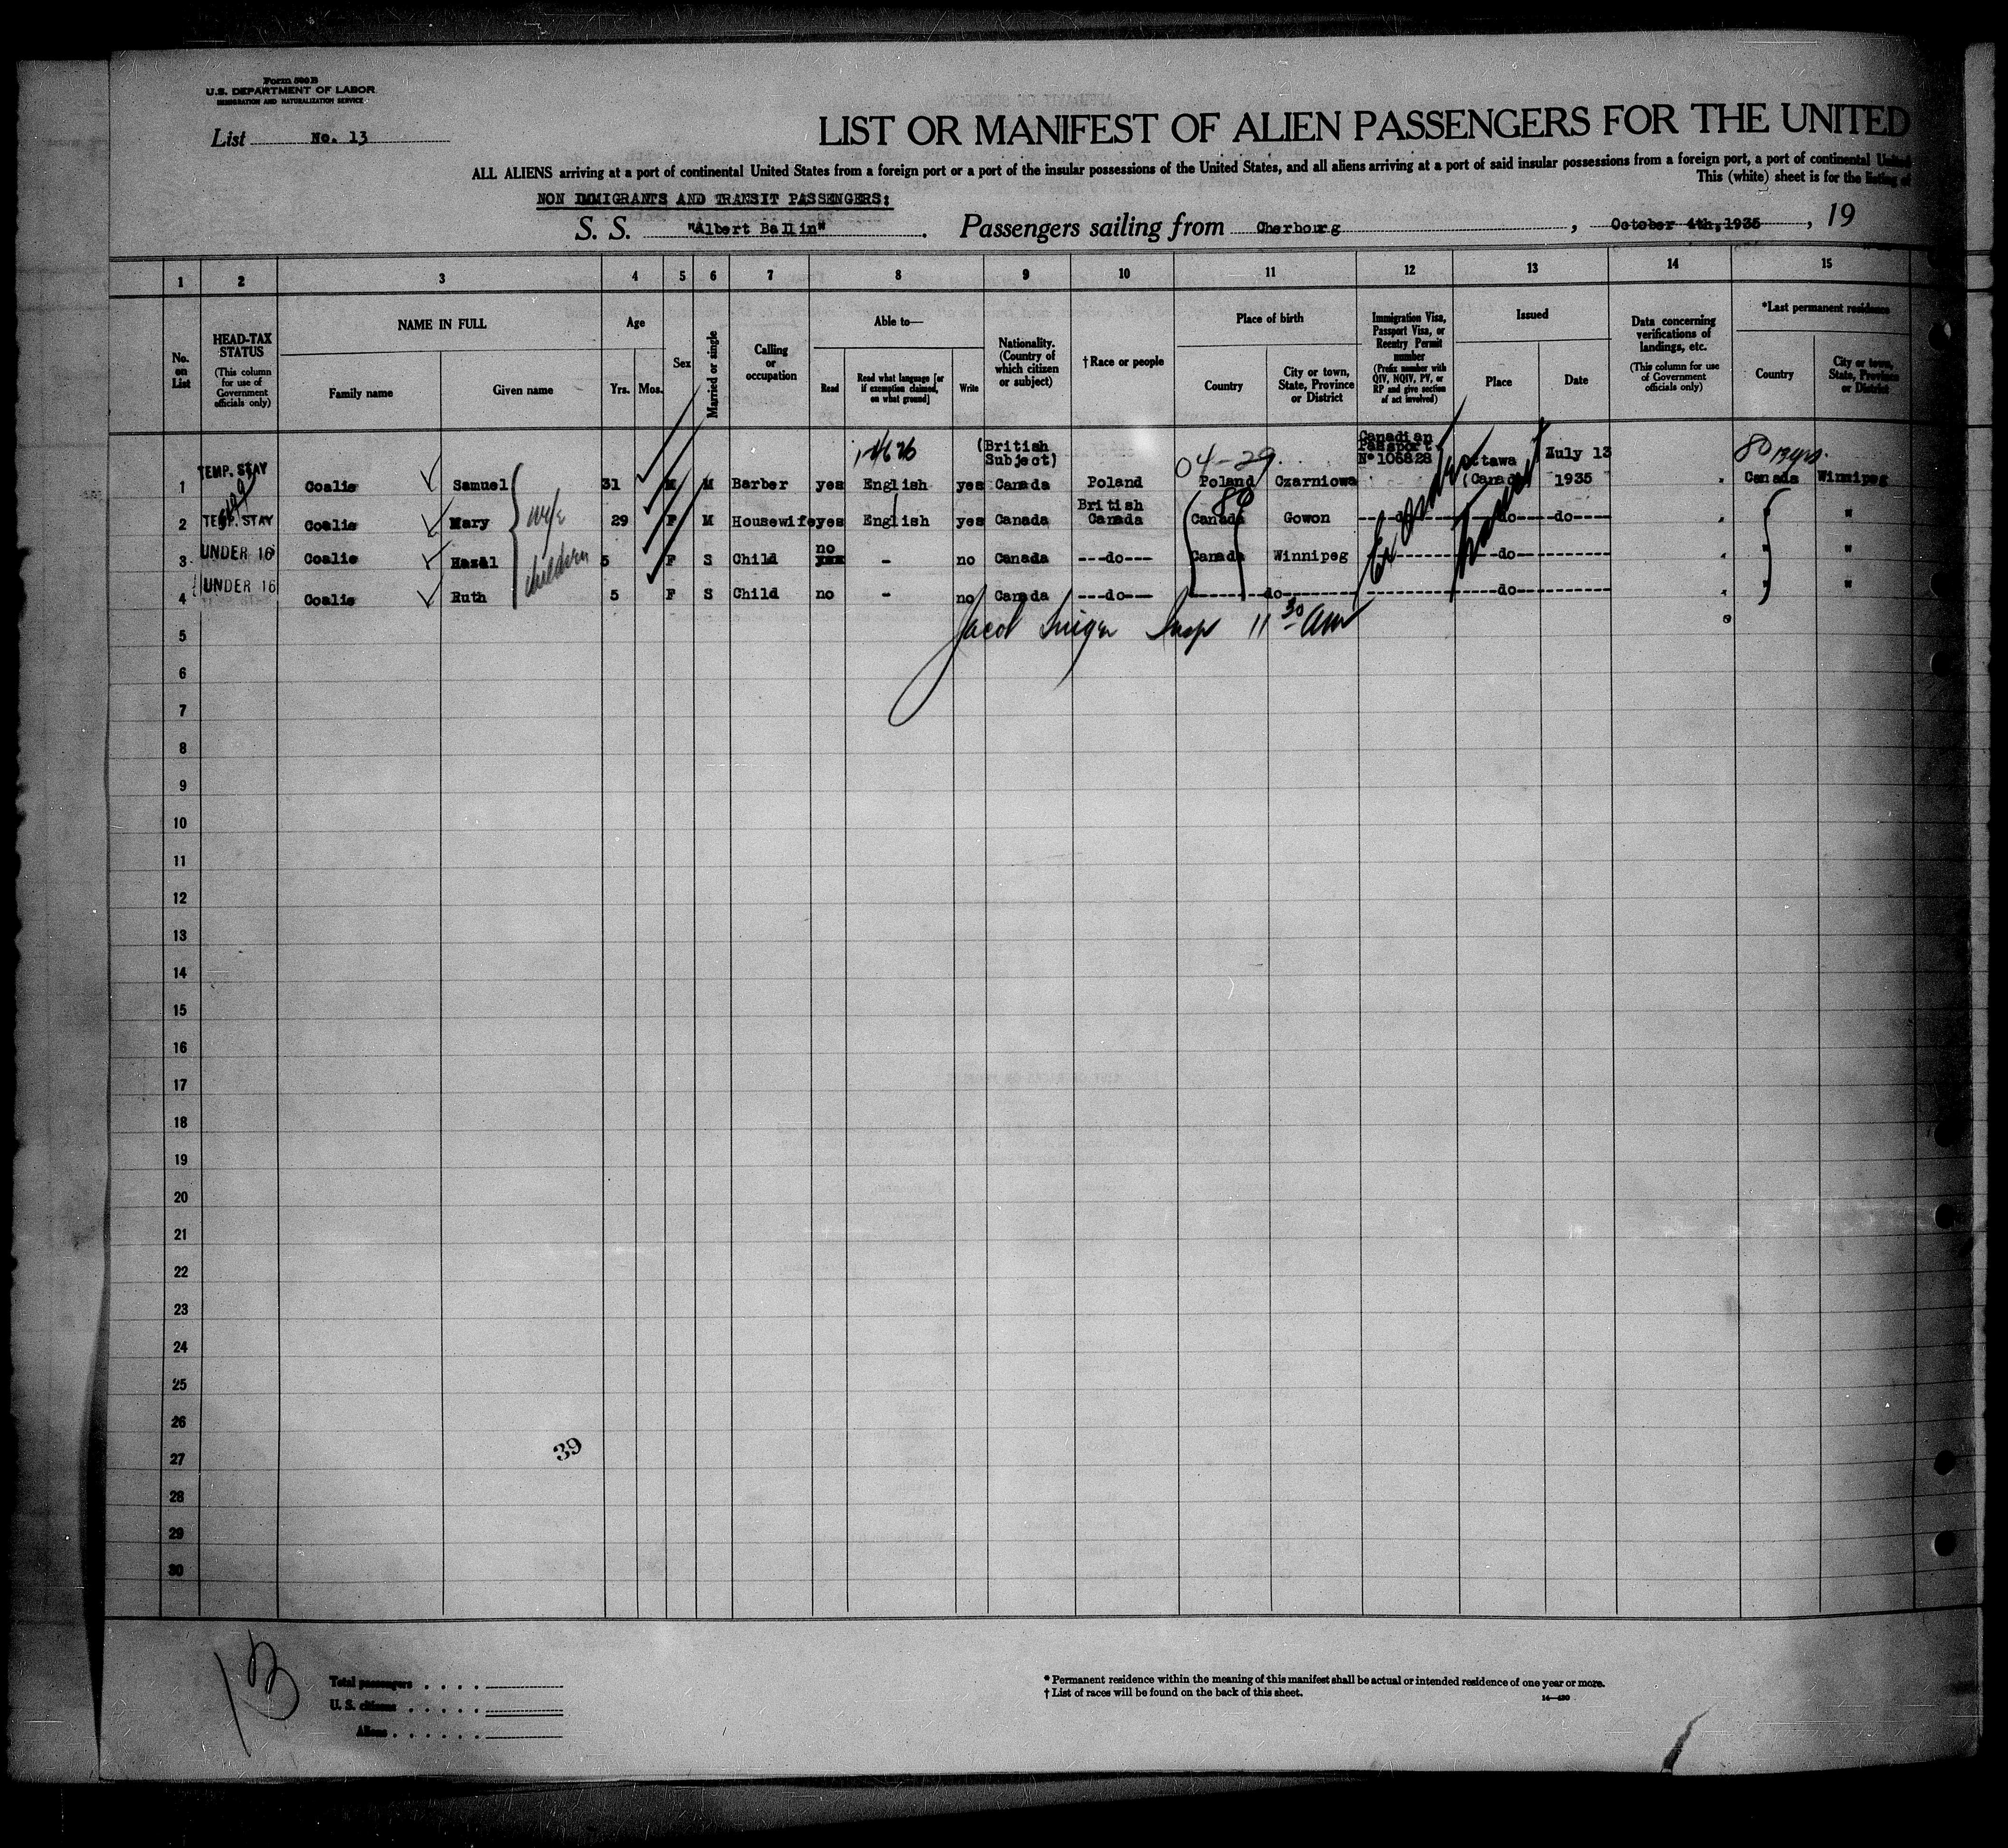 Form 500 B
U.S. DEPARTMENT OF LABOR
IMMIGRATION AND NATURALIZATION SERVICE
List No. 13
LIST OR MANIFEST OF ALIEN PASSENGERS FOR THE UNITED
ALL ALIENS arriving at a port of continental United States from a foreign port or a port of the insular possessions of the United States, and all aliens arriving at a port of said insular possessions from a foreign port, a port of continental United
This (white) sheet is for the listing of
NON IMMIGRANTS AND TRANSIT PASSENGERS:
S. S. "Albert Ballin". Passengers sailing from Cherbourg, October 4th, 1935, 19
1 2 3 4 5 6 7 8 9 10 11 12 13 14 15
No. on List
HEAD-TAX STATUS (This column for use of Government officials only)
NAME IN FULL
Family name
Given name
Age
Yrs.
Mos.
Sex
Married or single
Calling or occupation
Able to—
Read
Read what language [or if exemption claimed, on what ground]
Write
Nationality. (Country of which citizen or subject)
†Race or people
Place of birth
Country
City or town, State, Province or District
Immigration Visa, Passport Visa, or Reentry Permit number (Prefix number with QIV, NQIV, PV, or RP and give section of act involved)
Issued
Place
Date
Data concerning verifications of landings, etc. (This column for use of Government officials only)
*Last permanent residence
Country
City or town, State, Province or District
(British Subject) 04-29 Canadian Passport No 106828 Ottawa July 13 80 13 yrs.
1 TEMP. STAY Coalis Samuel 31 M M Barber yes English yes Canada Poland Poland Czarniowa (Canada 1935 Canada Winnipeg
2 TEMP. STAY Coalis Mary wife 29 F M Housewife yes English yes Canada British Canada Canada Gowon do do " "
3 UNDER 16 Coalis Hazel children 5 F S Child no no Canada ---do--- Canada Winnipeg do " "
4 UNDER 16 Coalis Ruth 5 F S Child no - no Canada ---do--- do do " "
5 11 30 am
6
7
8
9
10
11
12
13
14
15
16
17
18
19
20
21
22
23
24
25
26
39
27
28
29
30
13
Total passengers
U. S. citizens
Aliens
* Permanent residence within the meaning of this manifest shall be actual or intended residence of one year or more.
† List of races will be found on the back of this sheet.
14—430